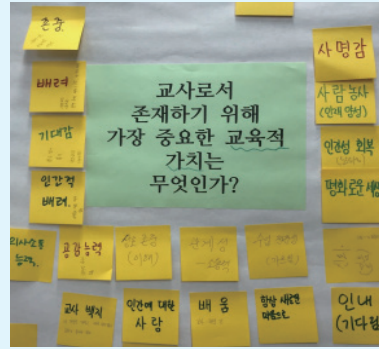 존중
배려
기대감
인간적
배려
교사로서
존재하기 위해
가장 중요한 교육적
가치는
무엇인가?
사명감
사람 농사
(인재 양성)
인간성 회복
평화로운 세상
의사소통
능력
공감능력
상호 존중
(이해)
수업 전문성
교사 복지
인간에 대한
사랑
배움
항상 새로운
마음으로
인내
(기다림)